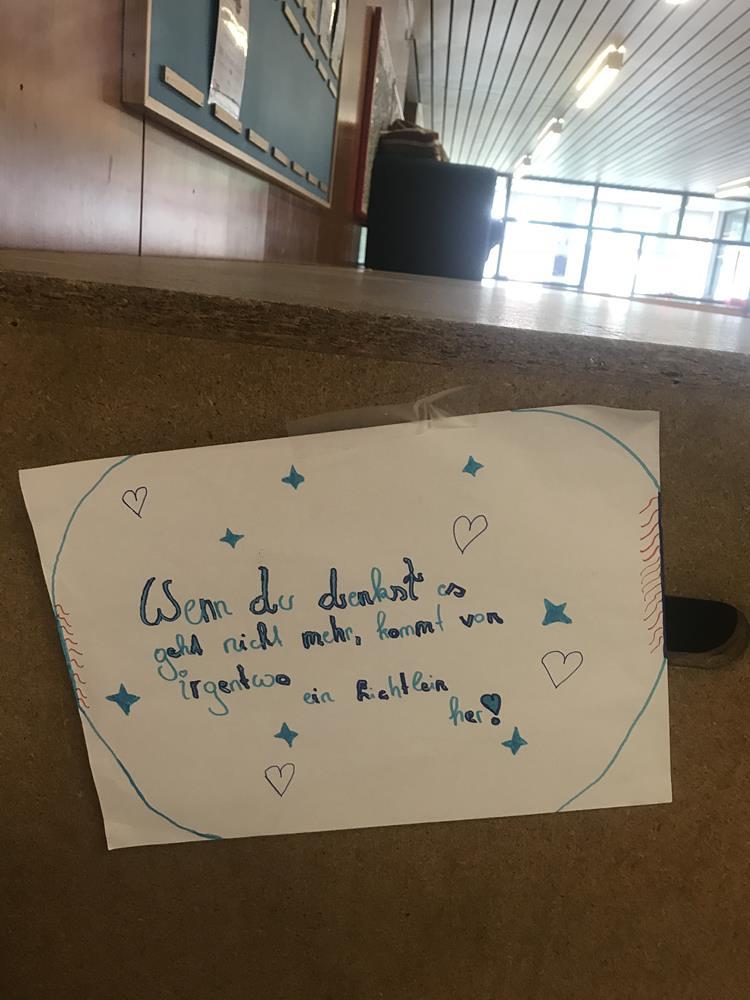 Wenn du denkst es
geht nicht mehr, kommt von
irgentwo
ein Lichtlein
her!